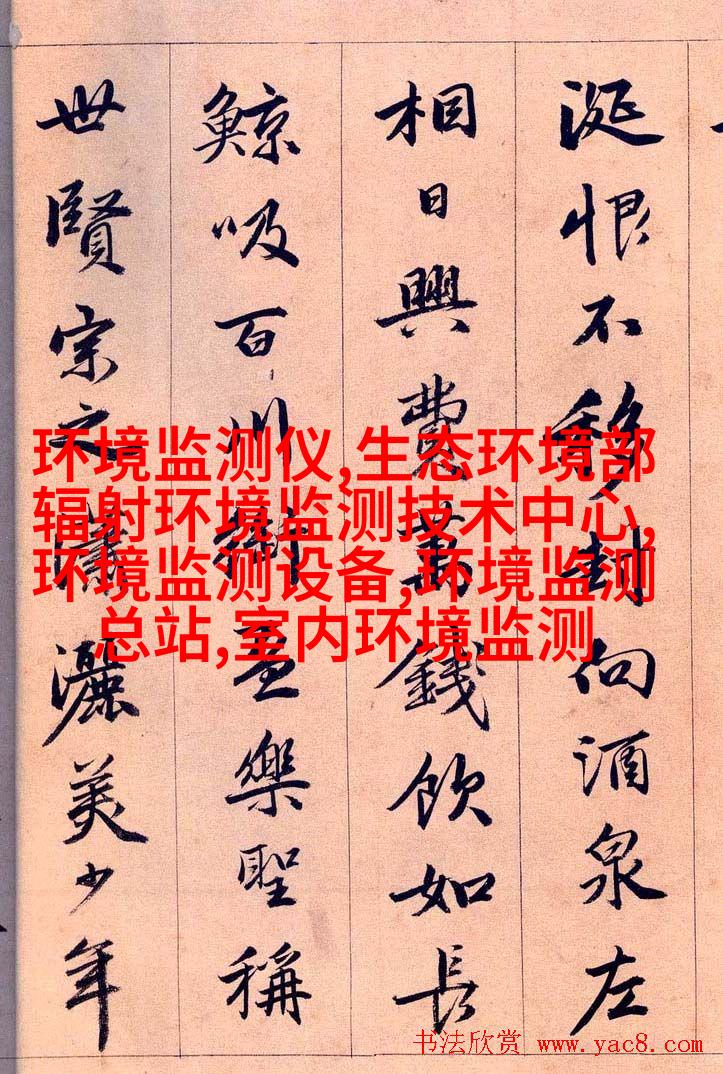 涎恨不移封向酒泉左
相日興費萬錢飲如長
鯨吸百川銜盃樂聖稱
世賢宗之瀟灑美少年
环境监测仪,生态环境部
辐射环境监测技术中心,
环境监测设备,环境监测
总站,室内环境监测
书法欣赏 www.yac8.com